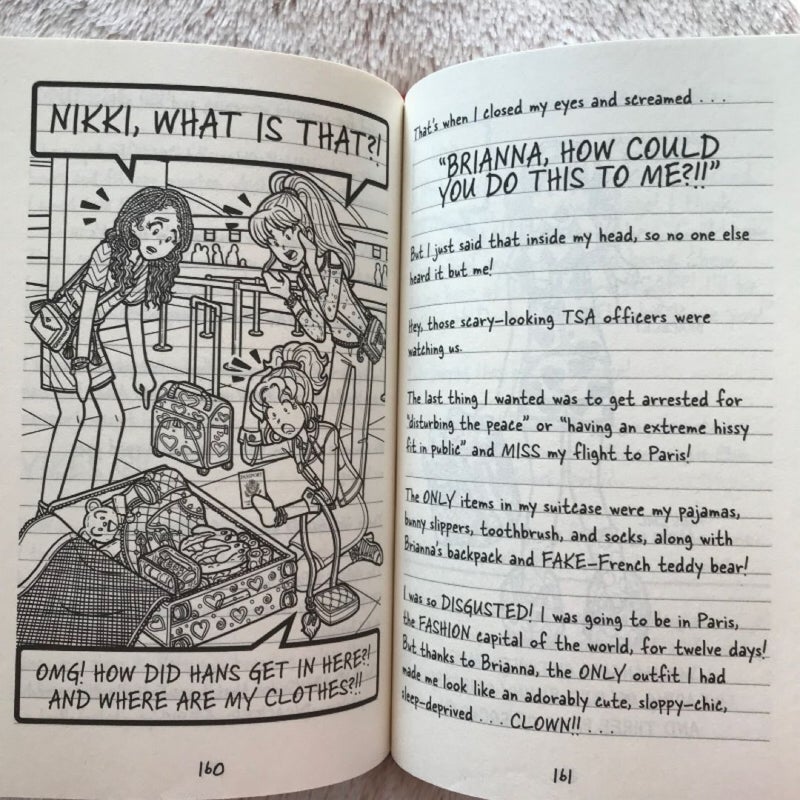 NIKKI, WHAT IS THAT?!
PASSPORT
OMG! HOW DID HANS GET IN HERE?!
AND WHERE ARE MY CLOTHES?!!
160
That's when I closed my eyes and screamed . . .
"BRIANNA, HOW COULD
YOU DO THIS TO ME?!!"
But I just said that inside my head, so no one else
heard it but me!
Hey, those scary-looking TSA officers were
watching us.
The last thing I wanted was to get arrested for
"disturbing the peace" or "having an extreme hissy
fit in public" and MISS my flight to Paris!
The ONLY items in my suitcase were my pajamas,
bunny slippers, toothbrush, and socks, along with
Brianna's backpack and FAKE-French teddy bear!
I was so DISGUSTED! I was going to be in Paris,
the FASHION capital of the world, for twelve days!
But thanks to Brianna, the ONLY outfit I had
made me look like an adorably cute, sloppy-chic,
sleep-deprived . . . CLOWN!! . . .
161